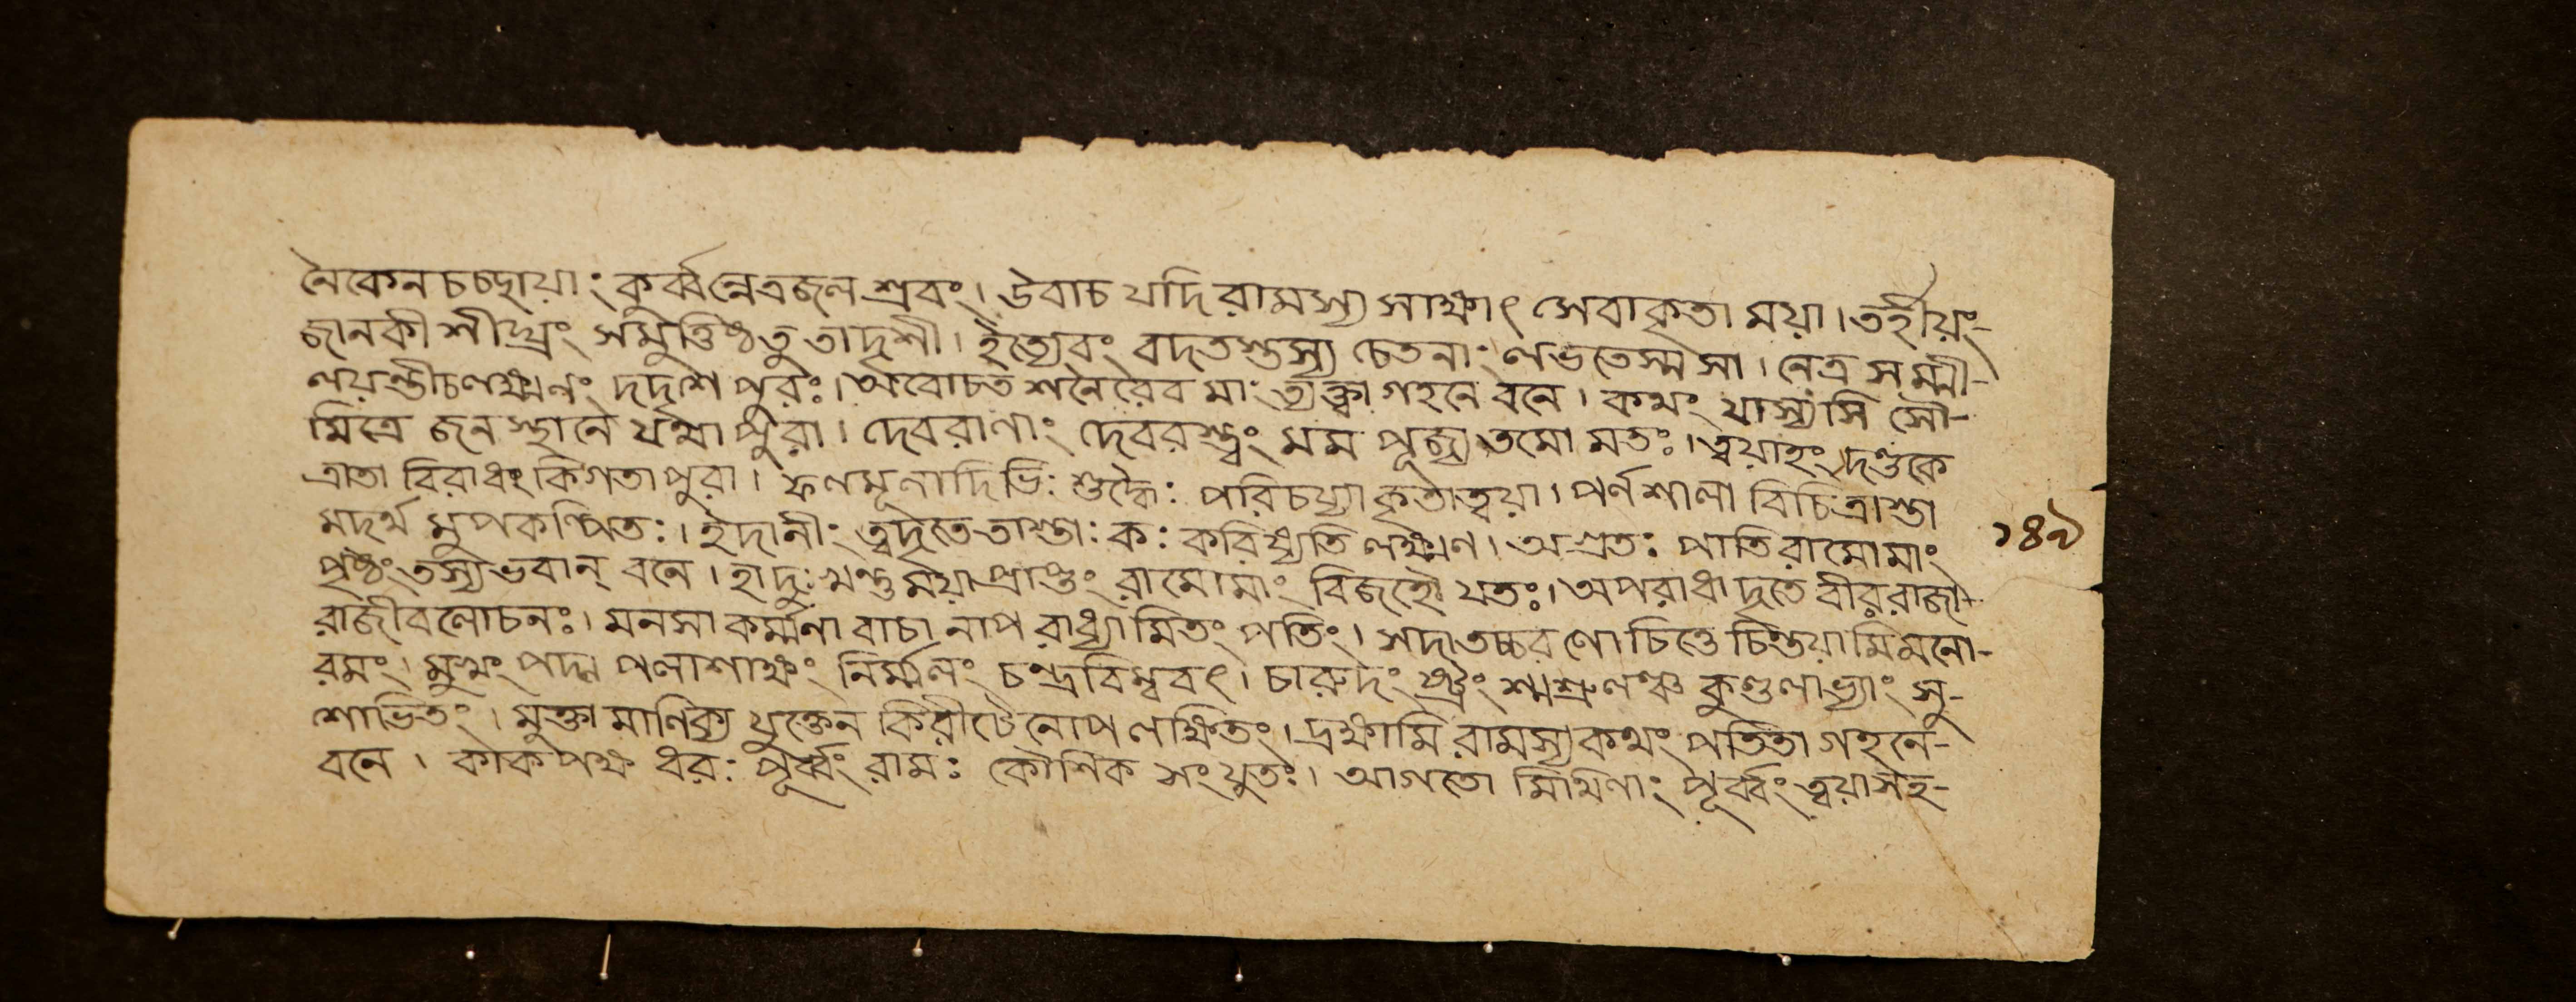 নৈকেন চচ্ছায়াং কুর্ব্বন্নেত্রজল শ্রবং। উবাচ যদি রামস্য সাক্ষাৎ সেবাকৃতা ময়া। তর্হীয়ং-
জানকী শীঘ্রং সমুত্তিষ্ঠতু তাদৃশী। ইত্যেবং বদতস্তস্য চেতনাং লভতেস্ম সা। নেত্র সমুন্মী-
লয়ন্তীচলক্ষ্মণং দদর্শ পুরঃ। অবোচত শনৈরেব মাং ত্যক্ত্বা গহনে বনে। কথং যাস্যসি সৌ-
মিত্রে জনস্থানে যথা পুরা। দেবরাণাং দেবরস্ত্বং মম পূজ্যতমো মতঃ। ত্বয়াহং দণ্ডকে
ত্রাতা বিরাধংকিগতা পুরা। ফলমূলাদিভিঃ শুদ্ধৈঃ পরিচর্য্যা কৃতাত্বয়া। পর্ণশালা বিচিত্রাস্তা
মদর্থ মুপকল্পিতঃ। ইদানীং ত্বদৃতে তাস্তাঃ কঃ করিষ্যতি লক্ষ্মণ। অগ্রতঃ পাতি রামোমাং
পৃষ্ঠং তস্যভবান্ বনে। হাদুঃখন্তু ময়াপ্রাপ্তং রামোমাং বিজহৌ যতঃ। অপরাধাদৃতে বীর রাজা-
রাজীবলোচনঃ। মনসা কর্ম্মনা বাচা নাপরাধ্যামিতং পতিং। সদাতচ্চরণো চিত্তে চিন্তয়ামিমনো-
রমং। মুখং পদ্ম পলাশাক্ষং নির্ম্মলং চন্দ্রবিম্ববৎ। চারুদং ষ্ট্রং শ্মশ্রুলঞ্চ কুণ্ডলাভ্যাং সু-
শোভিতং। মুক্তা মাণিক্য যুক্তেন কিরীটেনোপলক্ষিতং। দ্রক্ষামি রামস্যকথং পতিতা গহনে-
বনে। কাকপক্ষ ধরঃ পূর্ব্বং রামঃ কৌশিক সংযুতঃ। আগতো মিথিলাং পূর্ব্বং ত্বয়াসহ-
১৪৯